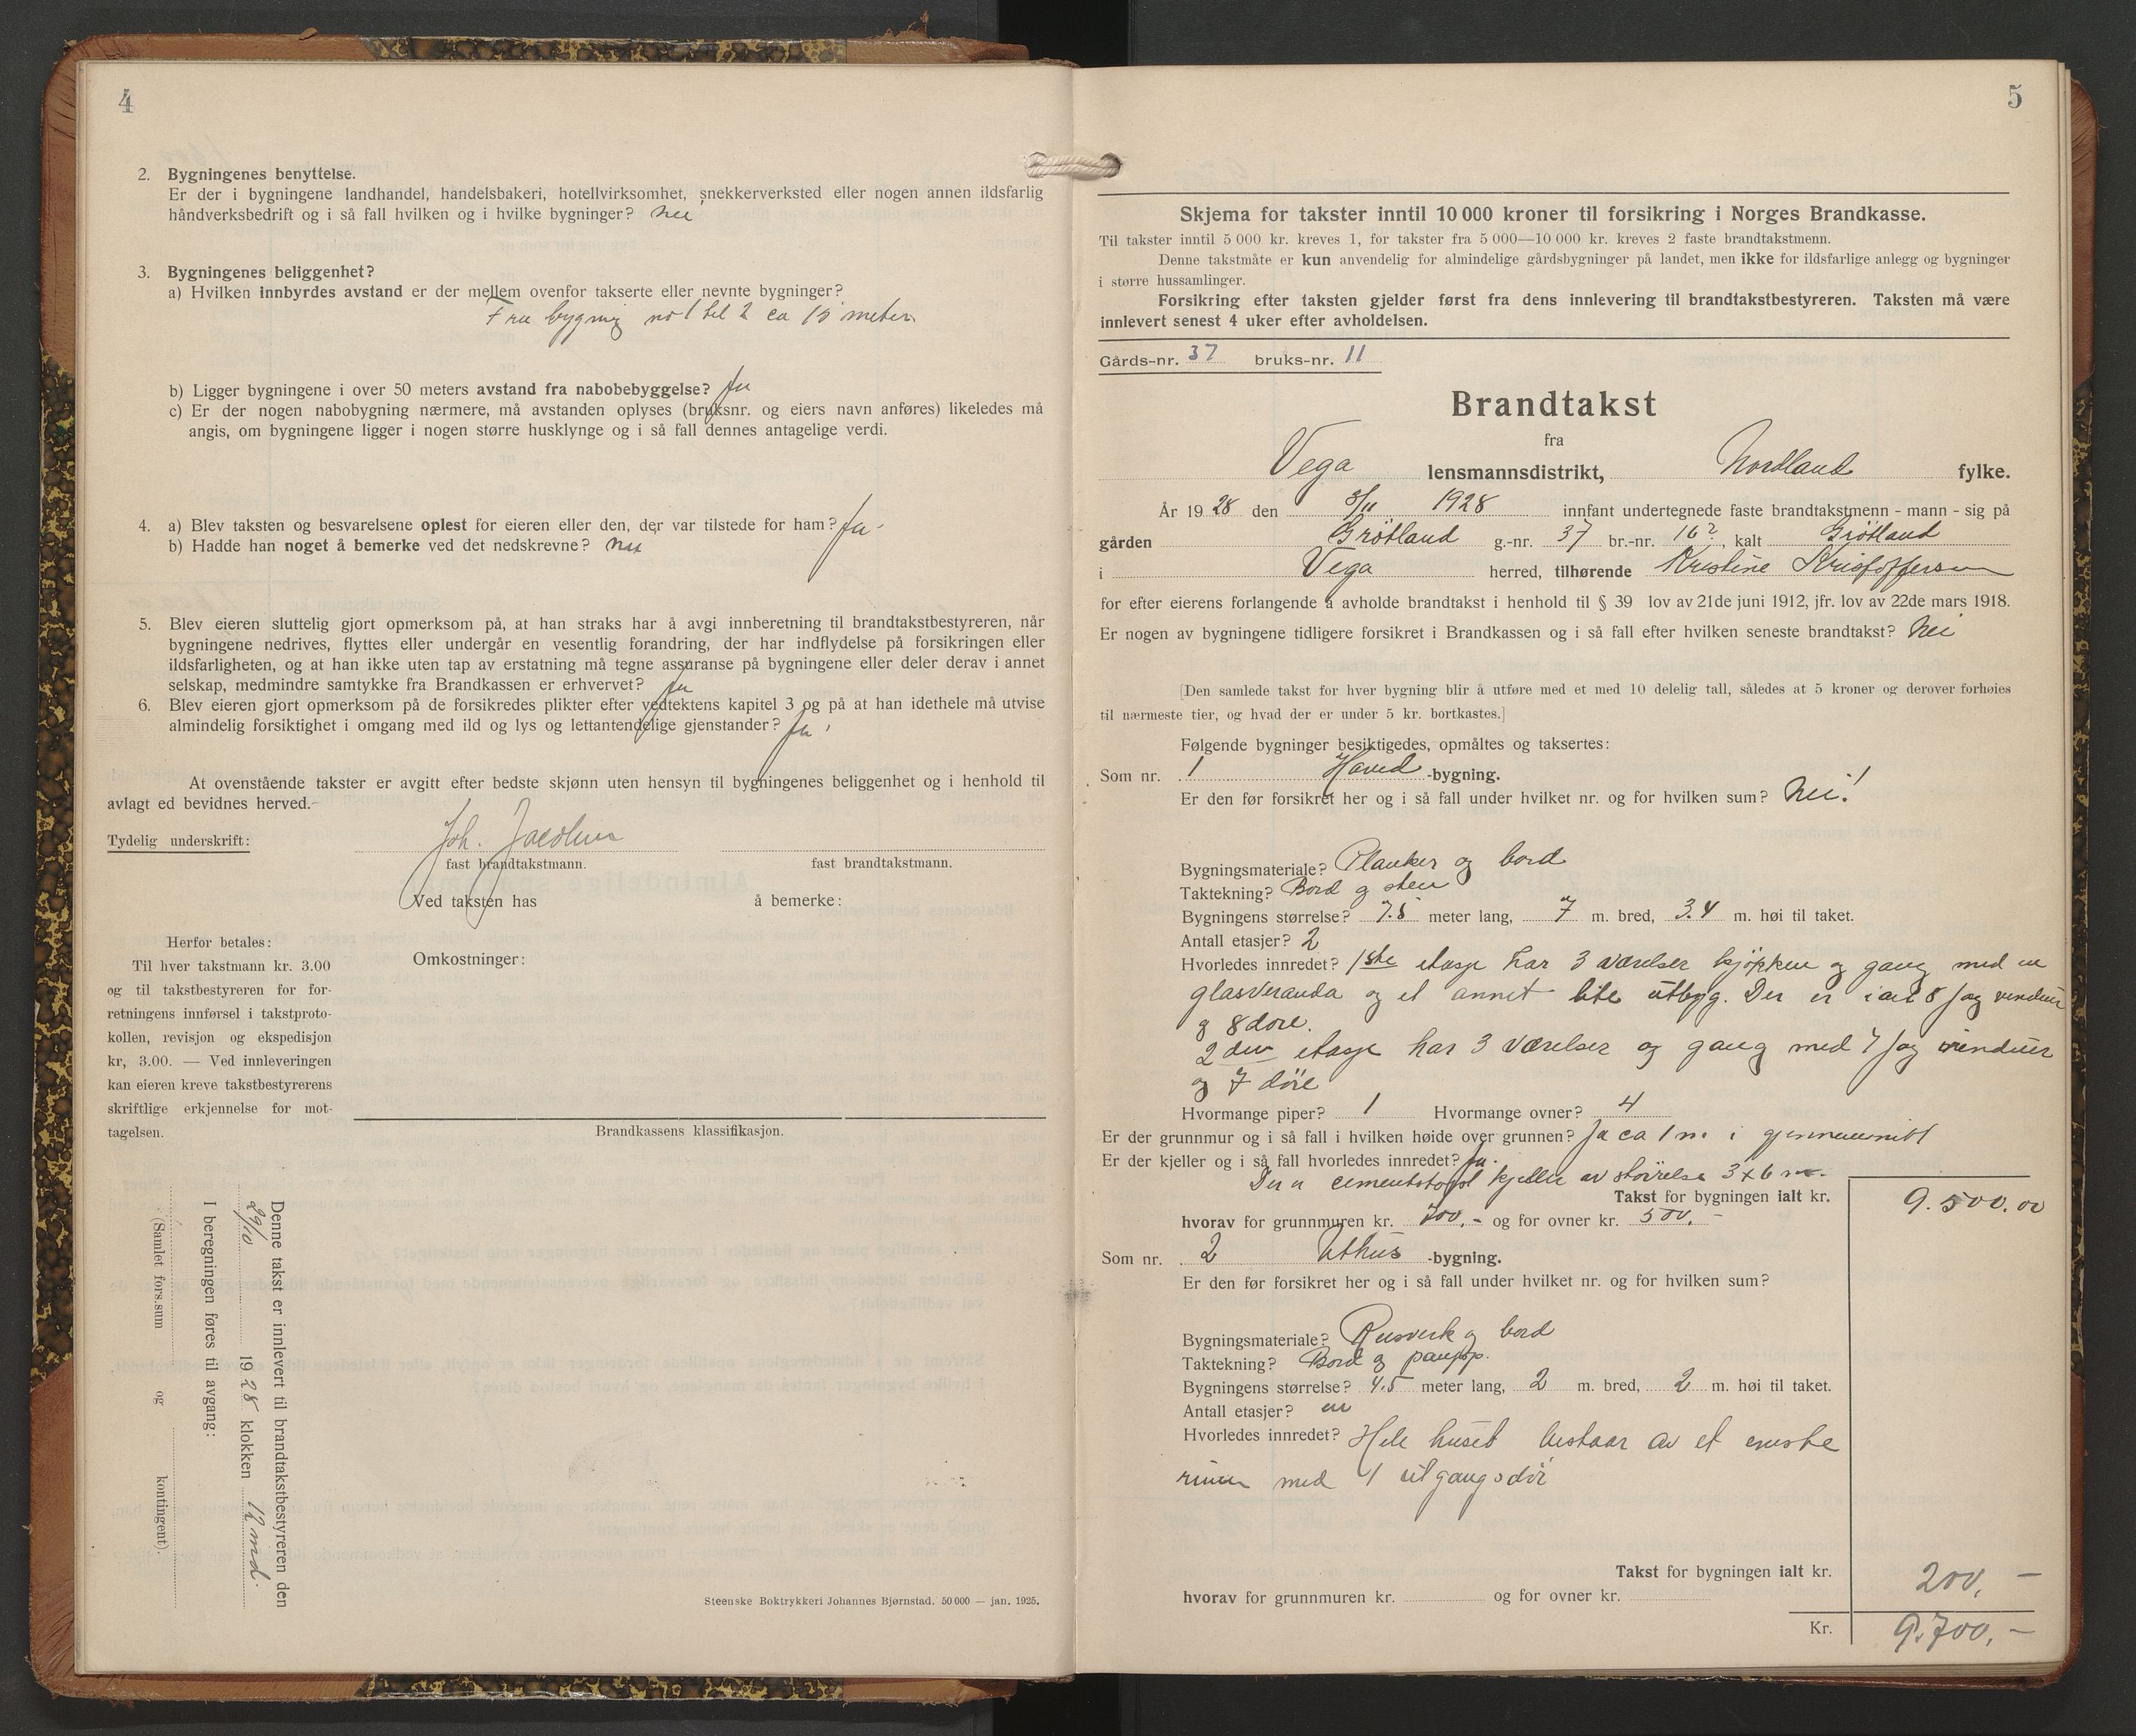 4
2. Bygningenes benyttelse.
Er der i bygningene landhandel, handelsbakeri, hotellvirksomhet, snekkerverksted eller nogen annen ildsfarlig
håndverksbedrift og i så fall hvilken og i hvilke bygninger? nei
3. Bygningenes beliggenhet?
a) Hvilken innbyrdes avstand er der mellem ovenfor takserte eller nevnte bygninger?
Fra bygning no 1 til 2 ca 15 meter
b) Ligger bygningene i over 50 meters avstand fra nabobebyggelse? Ja
c) Er der nogen nabobygning nærmere, må avstanden oplyses (bruksnr. og eiers navn anføres) likeledes må
angis, om bygningene ligger i nogen større husklynge og i så fall dennes antagelige verdi.
4. a) Blev taksten og besvarelsene oplest for eieren eller den, der var tilstede for ham? Ja -
b) Hadde han noget å bemerke ved det nedskrevne? nei
5. Blev eieren sluttelig gjort opmerksom på, at han straks har å avgi innberetning til brandtakstbestyreren, når
bygningene nedrives, flyttes eller undergår en vesentlig forandring, der har indflydelse på forsikringen eller
ildsfarligheten, og at han ikke uten tap av erstatning må tegne assuranse på bygningene eller deler derav i annet
selskap, medmindre samtykke fra Brandkassen er erhvervet? Ja
6. Blev eieren gjort opmerksom på de forsikredes plikter efter vedtektens kapitel 3 og på at han idethele må utvise
almindelig forsiktighet i omgang med ild og lys og lettantendelige gjenstander? Ja!
At ovenstående takster er avgitt efter bedste skjønn uten hensyn til bygningenes beliggenhet og i henhold til
avlagt ed bevidnes herved.
Tydelig underskrift: Joh. Jacobsen
fast brandtakstmann. fast brandtakstmann.
Ved taksten has å bemerke:
Herfor betales:
Til hver takstmann kr. 3.00
og til takstbestyreren for for-
retningens innførsel i takstproto-
kollen, revisjon og ekspedisjon
kr, 3.00. — Ved innleveringen
kan eieren kreve takstbestyrerens
skriftlige erkjennelse for mot-
tagelsen.
Omkostninger:
Brandkassens klassifikasjon.
Denne takst er innlevert til brandtakstbestyreren den
29/10 1928 klokken 12 md.
I beregningen føres til avgang:
(Samlet fors.sum og kontingent).
Steenske Boktrykkeri Johannes Bjørnstad. 50 000 — jan. 1925.
5
Skjema for takster inntil 10 000 kroner til forsikring i Norges Brandkasse.
Til takster inntil 5 000 kr. kreves 1, for takster fra 5 000—10 000 kr. kreves 2 faste brandtakstmenn.
Denne takstmåte er kun anvendelig for almindelige gårdsbygninger på landet, men ikke for ildsfarlige anlegg og bygninger
i større hussamlinger.
Forsikring efter taksten gjelder først fra dens innlevering til brandtakstbestyreren. Taksten må være
innlevert senest 4 uker efter avholdelsen.
Gårds-nr. 37 bruks-nr. 11
Brandtakst
fra
Vega lensmannsdistrikt, Nordland fylke.
År 1928 den 3/11 1928 innfant undertegnede faste brandtakstmenn - mann - sig på
gården Grötland g.-nr. 37 br.-nr. 16?, kalt Grötland
i Vega herred, tilhørende Kristine Kristoffersen
for efter eierens forlangende å avholde brandtakst i henhold til § 39 lov av 21de juni 1912, jfr. lov av 22de mars 1918.
Er nogen av bygningene tidligere forsikret i Brandkassen og i så fall efter hvilken seneste brandtakst? Nei
[Den samlede takst for hver bygning blir å utføre med et med 10 delelig tall, således at 5 kroner og derover forhøies
til nærmeste tier, og hvad der er under 5 kr. bortkastes.]
Følgende bygninger besiktigedes, opmåltes og taksertes:
Som nr. 1 Hoved -bygning.
Er den før forsikret her og i så fall under hvilket nr. og for hvilken sum? Nei!
Bygningsmateriale? Planker og bord
Taktekning? Bord og sten
Bygningens størrelse? 7.5 meter lang, 7 m. bred, 3.4 m. høi til taket.
Antall etasjer? 2
Hvorledes innredet? 1ste etasje har 3 værelser kjökken og gang med en
glasveranda og et annet lite utbyg. Der er i alt 8 fag vinduer
og 8 döre.
2den etasje har 3 værelser og gang med 7 fag vinduer
og 7 döre
Hvormange piper? 1 Hvormange ovner? 4
Er der grunnmur og i så fall i hvilken høide over grunnen? Ja ca 1 m. i gjennemsnit
Er der kjeller og i så fall hvorledes innredet? Ja.
Der er cementstöpt kjeller av störrelse 3x6 m.
Takst for bygningen ialt kr. 9.500.00
hvorav for grunnmuren kr. 700.- og for ovner kr. 500.-
Som nr. 2 Uthus -bygning.
Er den før forsikret her og i så fall under hvilket nr. og for hvilken sum?
Bygningsmateriale? Reisverk og bord
Taktekning? Bord og papp.
Bygningens størrelse? 4.5 meter lang, 2 m. bred, 2 m. høi til taket.
Antall etasjer? en
Hvorledes innredet? Hele huset bestaar av et eneste
rum med 1 utgangsdör
Takst for bygningen ialt kr. 200.-
hvorav for grunnmuren kr. og for ovner kr.
Kr. 9.700.-